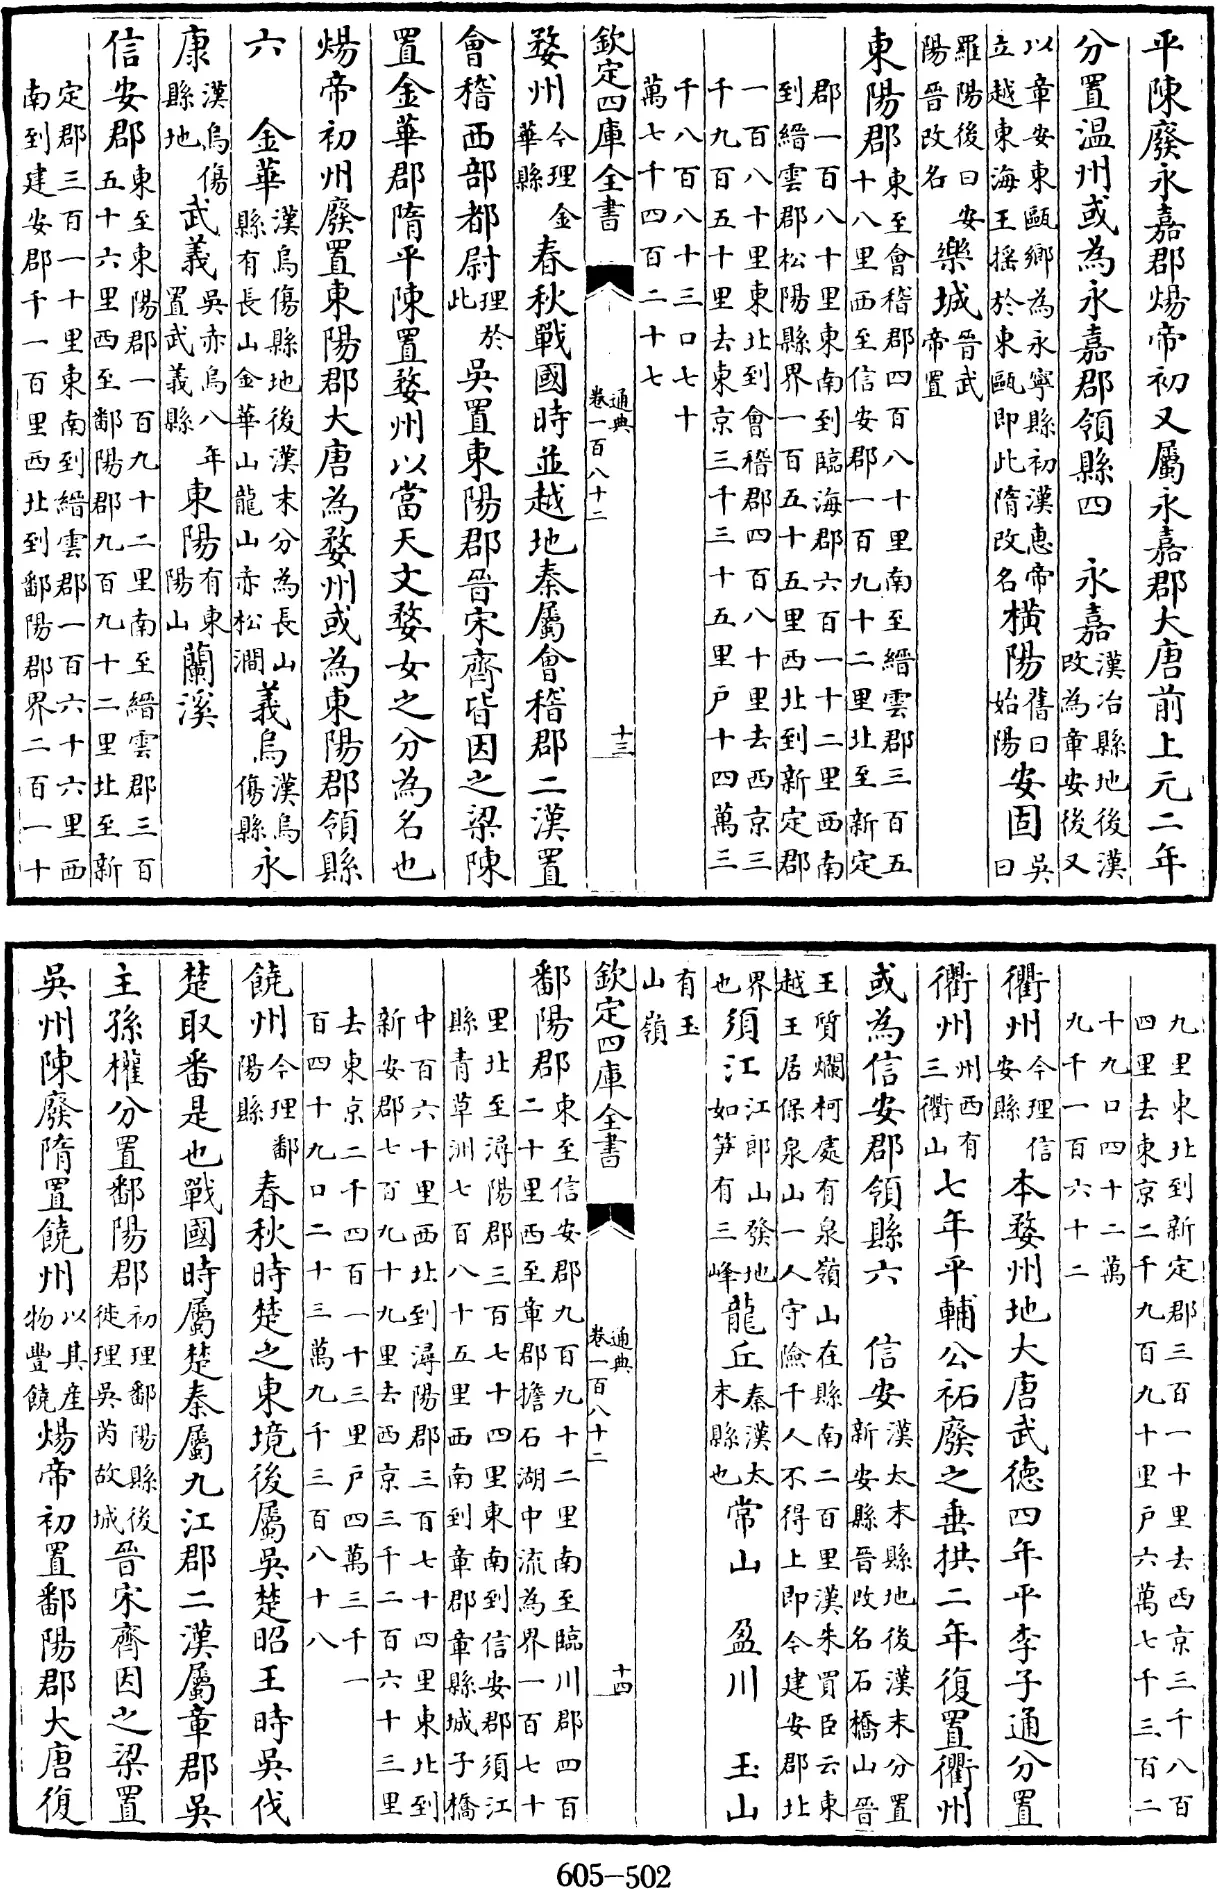 平陳廢永嘉郡煬帝初又屬永嘉郡大唐前上元二年
分置温州或為永嘉郡領縣四　永嘉漢冶縣地後漢改為章安後又
以章安東甌鄉為永寧縣初漢惠帝立越東海王搖於東甌即此隋改名橫陽舊曰始陽安固吳曰
羅陽後曰安陽晉改名樂城晉武帝置
東陽郡東至會稽郡四百八十里南至縉雲郡三百五十八里西至信安郡一百九十二里北至新定
郡一百八十里東南到臨海郡六百一十二里西南到縉雲郡松陽縣界一百五十五里西北到新定郡
一百八十里東北到會稽郡四百八十里去西京三千九百五十里去東京三千三十五里户十四萬三
千八百八十三口七十萬七千四百二十七
欽定四庫全書　通典卷一百八十二　十三
婺州今理金華縣春秋戰國時並越地秦屬會稽郡二漢置
會稽西部都尉理於此吳置東陽郡晉宋齊皆因之梁陳
置金華郡隋平陳置婺州以當天文婺女之分為名也
煬帝初州廢置東陽郡大唐為婺州或為東陽郡領縣
六　金華漢烏傷縣地後漢末分為長山縣有長山金華山龍山赤松澗義烏漢烏傷縣永
康漢烏傷縣地武義吳赤烏八年置武義縣東陽有東陽山蘭溪
信安郡東至東陽郡一百九十二里南至縉雲郡三百五十六里西至鄱陽郡九百九十二里北至新
定郡三百一十里東南到縉雲郡一百六十六里西南到建安郡千一百里西北到鄱陽郡界二百一十
九里東北到新定郡三百一十里去西京三千八百四里去東京二千九百九十里户六萬七千三百二
十九口四十二萬九千一百六十二
衢州今理信安縣本婺州地大唐武德四年平李子通分置
衢州州西有三衢山七年平輔公祏廢之垂拱二年復置衢州
或為信安郡領縣六　信安漢太末縣地後漢末分置新安縣晉改名石橋山晉
王質爛柯處有泉嶺山在縣南二百里漢朱買臣云東越王居保泉山一人守險千人不得上即今建安郡北
界也須江江郎山發地如笋有三峰龍丘秦漢太末縣也常山　盈川　玉山
有玉山嶺
欽定四庫全書　通典卷一百八十二　十四
鄱陽郡東至信安郡九百九十二里南至臨川郡四百二十里西至章郡擔石湖中流為界一百七十
里北至潯陽郡三百七十四里東南到信安郡須江縣青草洲七百八十五里西南到章郡章縣城子橋
中百六十里西北到潯陽郡三百七十四里東北到新安郡七百九十九里去西京三千二百六十三里
去東京二千四百一十三里户四萬三千一百四十九口二十三萬九千三百八十八
饒州今理鄱陽縣春秋時楚之東境後屬吳楚昭王時吳伐
楚取番是也戰國時屬楚秦屬九江郡二漢屬章郡吳
主孫權分置鄱陽郡初理鄱陽縣後徙理吳芮故城晉宋齊因之梁置
吳州陳廢隋置饒州以其產物豐饒煬帝初置鄱陽郡大唐復
605-502